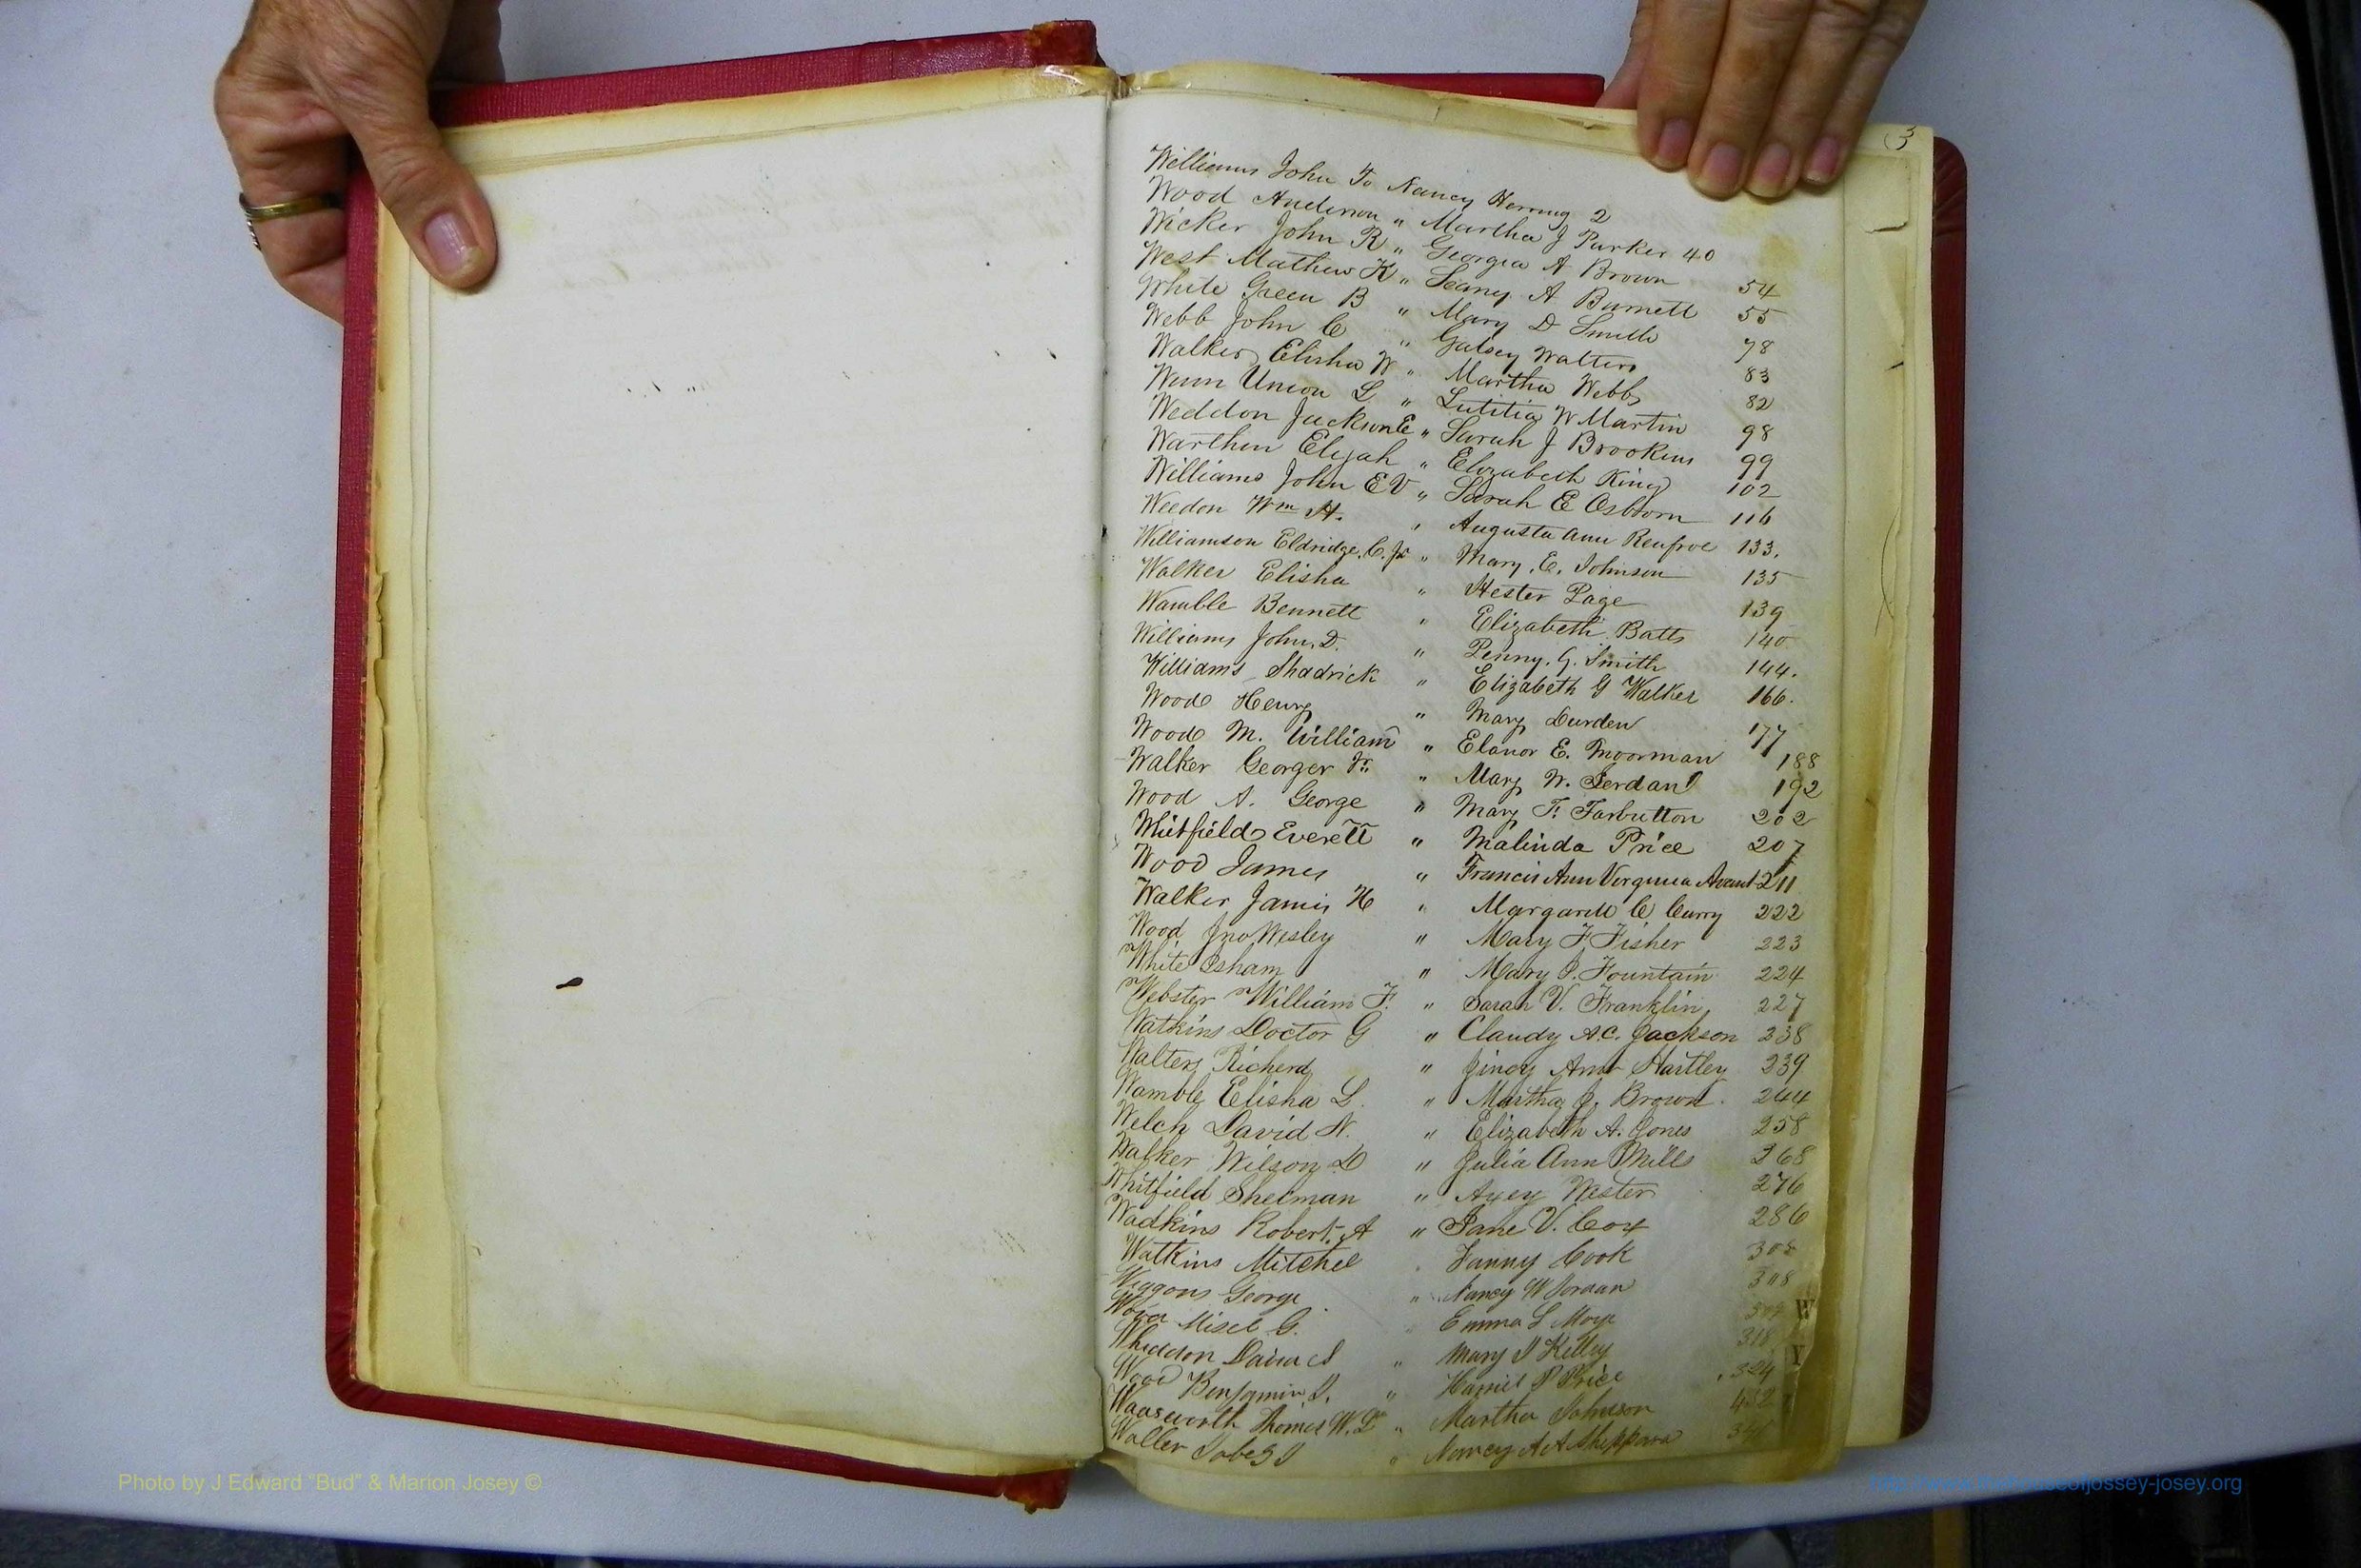 3
Williams John To Nancy Herring 2
Wood Anderson " Martha J Parker 40
Wicker John R " Georgia A Brown 54
West Mathew K " Seany A Burnett 55
White Green B " Mary D Smith 78
Webb John C " Gatsey Walters 83
Walker Elisha W " Martha Webb 82
Wum Union L " Lutitia W Martin 98
Weddon Jackson E " Sarah J Brookins 99
Warthen Elijah " Elizabeth King 102
Williams John E V " Sarah E Osborn 116
Weedon Wm A. " Augusta Ann Renfroe 133.
Williamson Eldridge. C. Jr " Mary. E. Johnson 135
Walker Elisha " Hester Page 139
Wamble Bennett " Elizabeth Batts 140
Williams John. D. " Penny. G. Smith 144.
Williams Shadrick " Elizabeth G Walker 166.
Wood Henry " Mary Durden 177
Wood M. William " Elanor E. Moorman 188
Walker Georger Jr. " Mary W. Jerdan 192
Wood A. George " Mary F. Tarbutton 202
Whitfield Everett " Malinda Price 207
Wood James " Francis Ann Virginia Avant 211
Walker James H " Margarett C Curry 222
Wood Jno Wesley " Mary F. Fisher 223
White Isham " Mary P. Fountain 224
Webster William F. " Sarah V. Franklin 227
Watkins Doctor G " Claudy A.C. Jackson 238
Walters Richerd " Jincy Ann Hartley 239
Wamble Elisha L. " Martha J. Brown. 244
Welch David N. " Elizabeth A. Jones 258
Walker Wilson D " Julia Ann Mills 268
Whitfield Shelman " Axey Wester 276
Wadkins Robert. A " Jane V. Cox 286
Watkins Mitchel Fanny Cook 308
Wiggons George " Nancy W Jordan 308
Wood Misel G. Emma L Moye W
Wheddon David S " Mary J Kelley 318 Y
Wood Benjamin J. " Harriet P Price 324
Wadsworth Thomas W. D " Martha Johnson 432
Waller Jabez J " Nancy A A Sheppard
Photo by J Edward "Bud" & Marion Josey ©
http://www.thehouseofjossey-josey.org